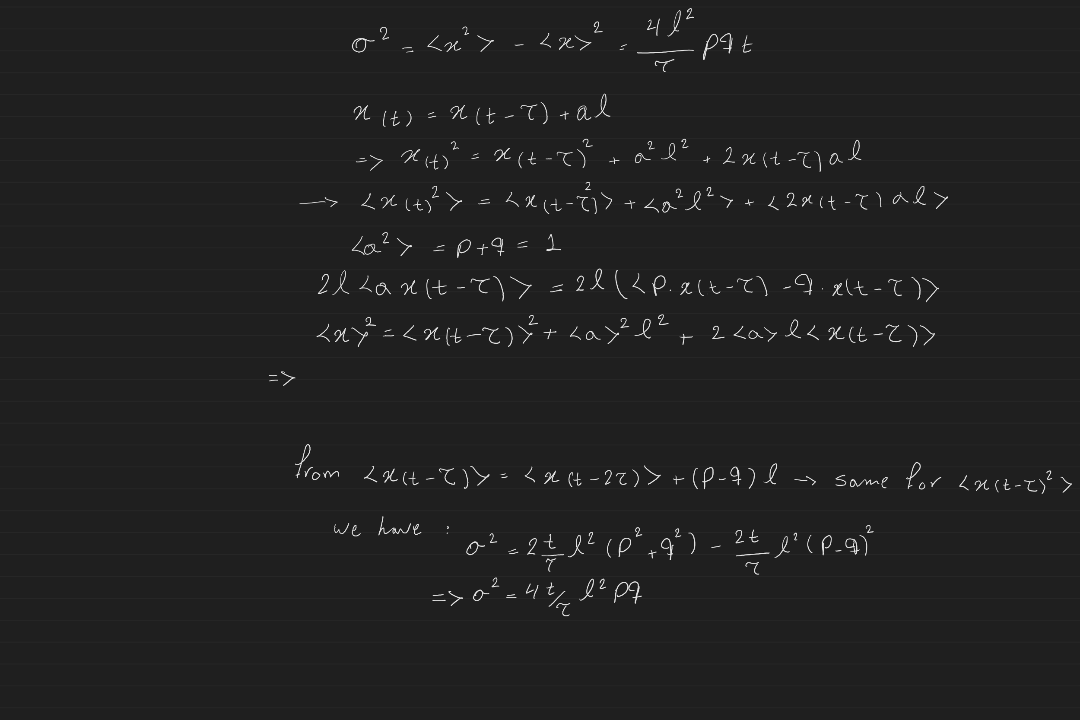 σ² = <x²> - <x>² = 4l²/τ pqt
x(t) = x(t-τ) + al
=> x(t)² = x(t-τ)² + a²l² + 2x(t-τ)al
→ <x(t)²> = <x(t-τ)²> + <a²l²> + <2x(t-τ)al>
<a²> = p+q = 1
2l<a x(t-τ)> = 2l(<p.x(t-τ) - q.x(t-τ)>
<x>² = <x(t-τ)>² + <a>²l² + 2<a>l<x(t-τ)>
=>
from <x(t-τ)> = <x(t-2τ)> + (p-q)l → same for <x(t-τ)²>
we have : σ² = 2t/τ l²(p²+q²) - 2t/τ l²(p-q)²
=> σ² = 4t/τ l²pq